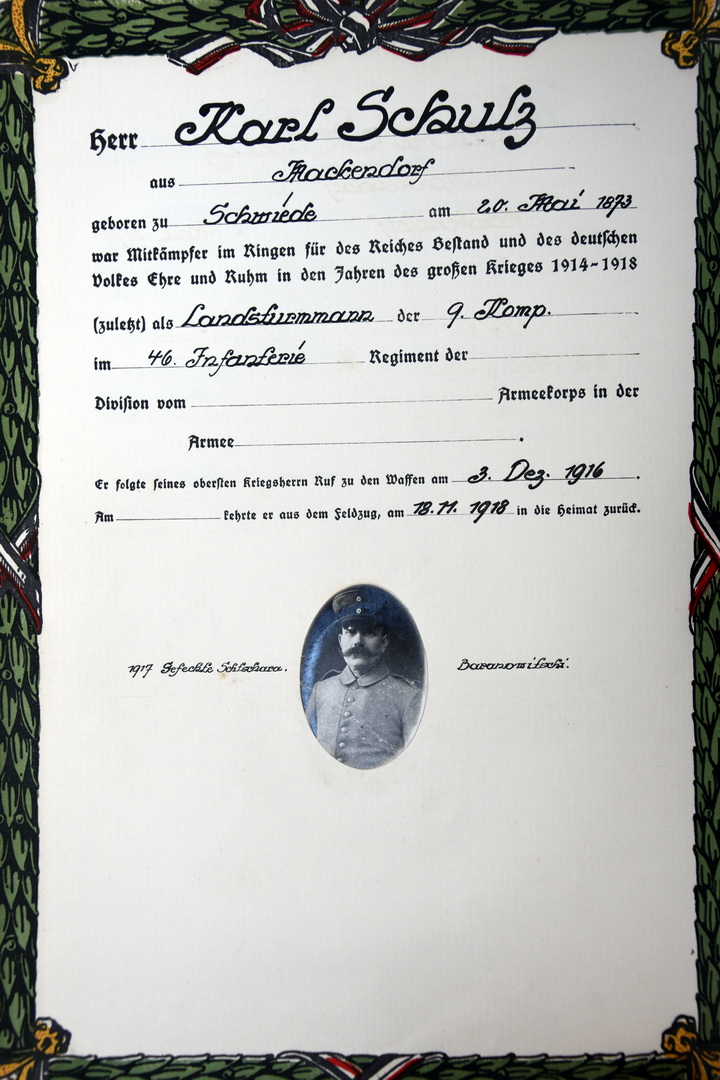 Herr Karl Schulz
aus Mackendorf
geboren zu Schwiede am 20. Mai 1873
war Mitkämpfer im Ringen für des Reiches Bestand und des deutschen
Volkes Ehre und Ruhm in den Jahren des großen Krieges 1914-1918
(zuletzt) als Landsturmmann der 9. Komp.
im 46. Infanterie Regiment der
Division vom Armeekorps in der
Armee .
Er folgte seines obersten Kriegsherrn Ruf zu den Waffen am 3. Dez. 1916 .
Am kehrte er aus dem Feldzug, am 18.11. 1918 in die Heimat zurück.
1917 Gefechte Schtschara. Baranowitschi.